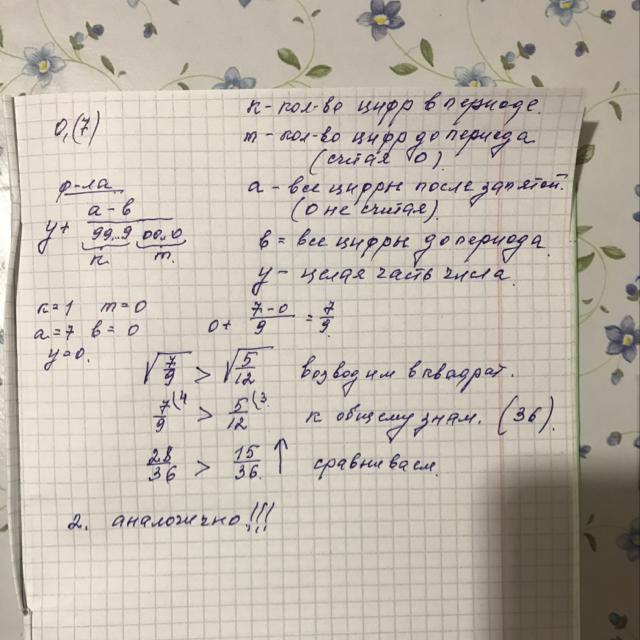 0,(7)
к - кол-во цифр в периоде.
m - кол-во цифр до периода
(считая 0).
ф-ла
a - все цифры после запятой.
(0 не считая).
y + a - в / 99...9 00..0
к. m.
в = все цифры до периода.
y - целая часть числа.
к = 1 m = 0
a = 7 в = 0
y = 0.
0 + 7-0 / 9 = 7/9
√7/9 > √5/12 возводим в квадрат.
7/9 (4 > 5/12 (3 к общему знам. (36).
28/36 > 15/36 ↑ сравниваем.
2. аналожично!!!